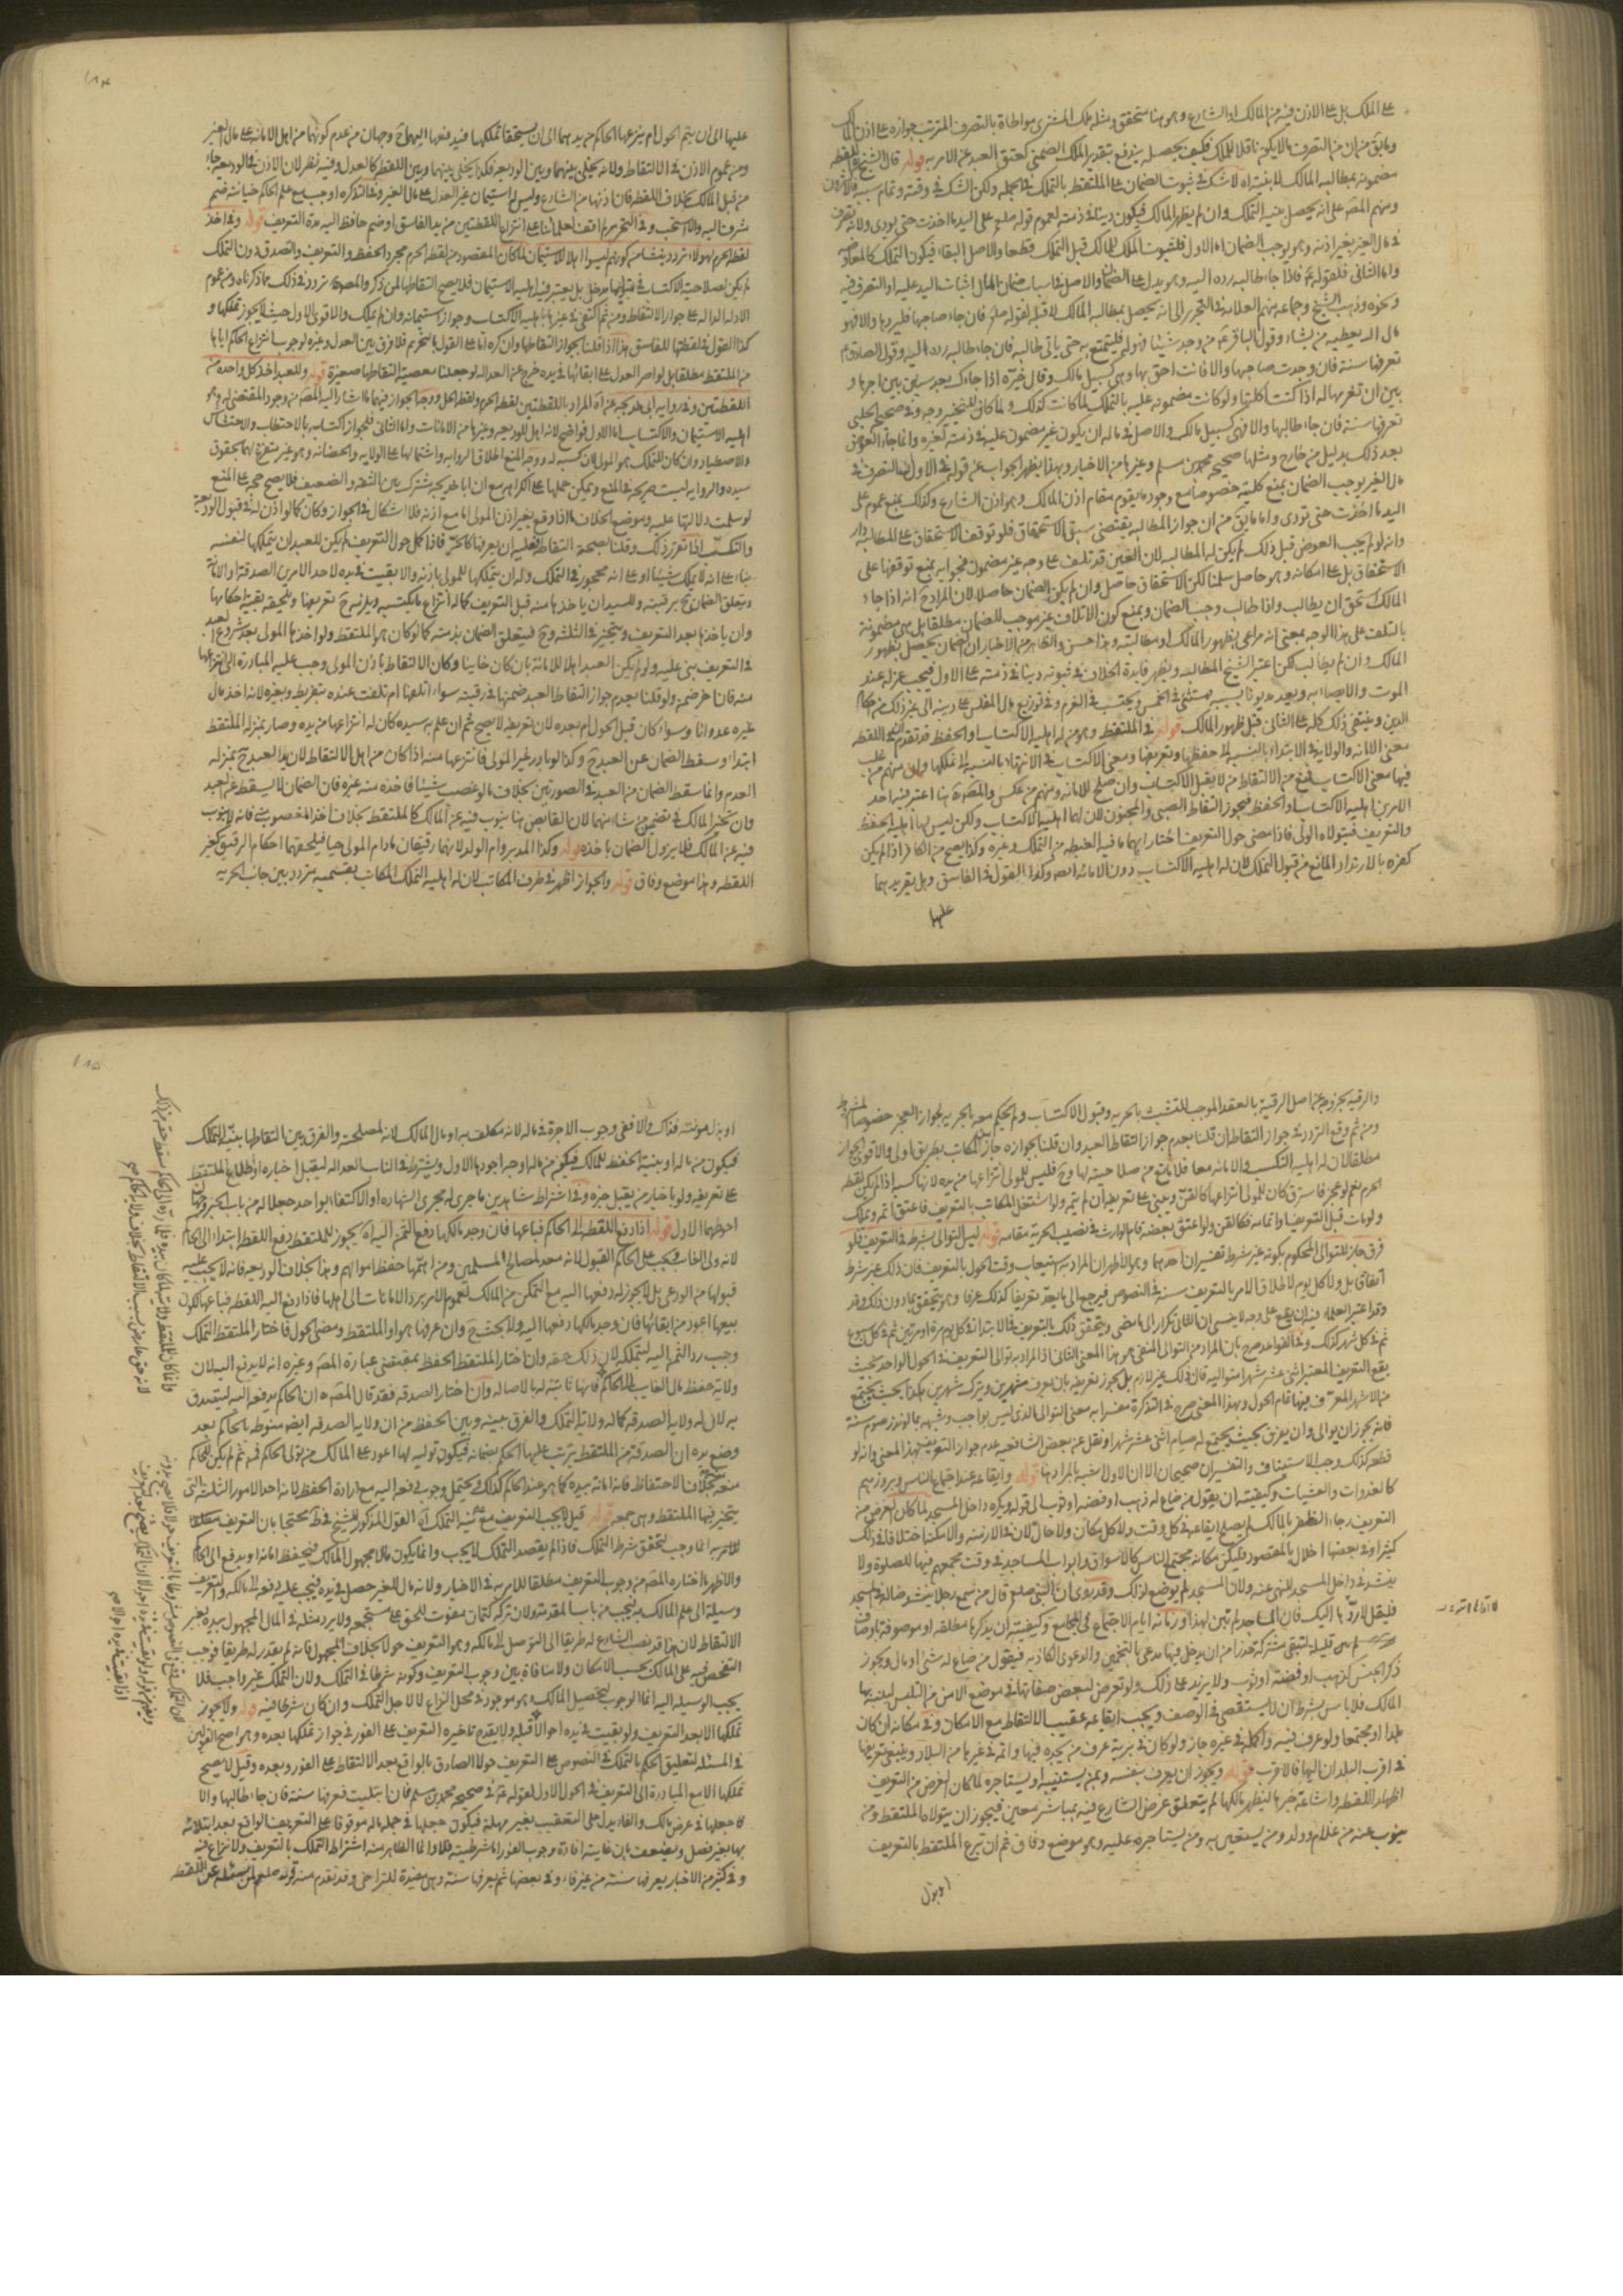 على الملك بل على الاذن فيه من المالك او الشارع وهو هنا متحقق ومثله ملك المشتري مواطاة بالتصرف المترتب جوازه على اذن المالك
وما يق من ان من التصرف ما لا يكون ناقلا للملك فكيف يحصل به يندفع بتقدير الملك الضمني كعتق العبد عن الامر به قوله قال الشيخ اللقطه
مضمونه بمطالبه المالك لا بنيته اه لا شك في ثبوت الضمان على الملتقط بالتملك في الجمله ولكن الشك في وقته وتمام سببه
ومنهم المصه على انه يحصل بنيه التملك وان لم يظهر المالك فيكون دينا في ذمته لعموم قوله صلع على اليد ما اخذت حتى يودى ولانه تصرف
في مال الغير بغير اذنه وهو يوجب الضمان اما الاول فلثبوت الملك للمالك قبل التملك قطعا والاصل البقاء فيكون التملك كالمعاوضه
واما الثاني فلقوله ع فاذا جاء طالبه رده اليه وهو يدل على الضمان والاصل في اسباب ضمان المال اثبات اليد عليه او التصرف فيه
ونحوه وذهب الشيخ وجماعه منهم العلامه في التحرير الى انه يحصل بمطالبه المالك لا قبله لقوله صلع فان جاء صاحبها فليردها والا فهو
مال الله يعطيه من يشاء وقول الباقر ع من وجد شيئا فهو له فليتمتع به حتى ياتى طالبه فان جاء طالبه رده اليه وقول الصادق ع
تعرفها سنة فان وجدت صاحبها والا فانت احق بها وهي كسبيل مالك وقال خيره اذا جاءك بعد سنة بين اجرها و
بين ان تغرمها له اذا كنت اكلتها ولو كانت مضمونه عليه بالتملك لما كانت كذلك ولما كان للتخيير وجه وفي صحيح الحلبي
تعرفها سنة فان جاء طالبها والا فهي كسبيل مالك والاصل في ماله ان يكون غير مضمون عليه في ذمته لغيره وانما جاء العوض
بعد ذلك بدليل من خارج ومثلها صحيحه محمد بن مسلم وغيرها من الاخبار وبهذا يظهر الجواب عن قولهم في الاول ان التصرف في
مال الغير يوجب الضمان بمنع كليته خصوصا مع وجود ما يقوم مقام اذن المالك وهو اذن الشارع وكذلك يمنع عموم على
اليد ما اخذت حتى تودى واما ما يق من ان جواز المطالبه يقتضى سبق الاستحقاق فلو توقف الاستحقاق على المطالبه دار
وانه لو لم يجب العوض قبل ذلك لم يكن له المطالبه لان العين قد تلفت على وجه غير مضمون فجوابه بمنع توقفها على
الاستحقاق بل على امكانه وهو حاصل سلمنا لكن الاستحقاق حاصل وان لم يكن الضمان حاصلا لان المراد ح انه اذا جاء
المالك تحق ان يطالب واذا طالب وجب الضمان ويمنع كون الاتلاف غير موجب للضمان مطلقا بل هي مضمونة
بالتلف على هذا الوجه بمعنى انه مراعى بظهور المالك او مطالبته وهذا حسن والظاهر من الاخبار ان الضمان يحصل بظهور
المالك وان لم يطالب لكن اعتبر الشيخ المطالبه ويظهر فايدة الخلاف في ثبوته دينا في ذمته على الاول فيجب عزله عند
الموت والايصاء به ويعد مديونا بسببه فيستثنى في الخمس ويحتسب في الغرم وفي توزيع مال المفلس على دينه الى غير ذلك من احكام
الدين وينتفى ذلك كله على الثاني قبل ظهور المالك قوله في الملتقط وهو من له اهليه الاكتساب او الحفظ قد تقدم ان في اللقطه
معنى الامانه والولاية في الابتداء بالنسبه الى حفظها وتعريفها ومعنى الاكتساب في الانتهاء بالنسبه الى تملكها وان منهم من غلب
فيها معنى الاكتساب فمنع من الالتقاط من لا يقبل الاكتساب وان صلح للامانه ومنهم من عكس والمصه هنا اعتبر فيه احد
الامرين اهليه الاكتساب او الحفظ فيجوز التقاط الصبى والمجنون لان لهما اهليه الاكتساب ولكن ليس لهما اهليه الحفظ
والتعريف فيتولاه الولى فاذا مضى حول التعريف اختار لهما ما فيه الغبطه من التملك وغيره وكذا يصح من الكافر اذا لم يكن
كفره بالارتداد المانع من قبول التملك لان له اهليه الاكتساب دون الامانه ايضا وكذا القول في الفاسق وهل يقر يدهما
عليها
١٨٤
عليها الى ان يتم الحول ام ينزعها الحاكم من يدهما الى ان يستحقا تملكها فيدفعها اليهما ح وجهان من عدم كونهما من اهل الامانه على مال الغير
ومن عموم الاذن في الالتقاط ولانه يخلى بينهما وبين الوديعه فكذا يخلى بينهما وبين اللقطه كالعدل وفيه نظر لان الاذن في الوديعه جاء
من قبل المالك بخلاف اللقطه فان اذنها من الشارع وليس له استيمان غير العدل على مال الغير وفي التذكره اوجب مع علم الحاكم خيانته ضم
مشرف اليه والا استحب وفي التحرير لم اقف لعلمائنا على انتزاع اللقطتين من يد الفاسق او ضم حافظ اليه مدة التعريف قوله وفي اخذ
لقطه الحرم لهولاء تردد ينشا من كونهم ليسوا اهلا للاستيمان لما كان المقصود من لقطه الحرم مجرد الحفظ والتعريف والتصدق دون التملك
لم يكن لصلاحيه الاكتساب في متوليها مدخل بل يعتبر فيه اهليه الاستيمان فلا يصح التقاطها لمن ذكر والمصه تردد في ذلك مما ذكرناه ومن عموم
الادله الداله على جواز الالتقاط ومن ثم اكتفى في غيرها باهليه الاكتساب وجواز استيمانه وان لم يملك والاقوى الاول حيث لا يجوز تملكها و
كذا القول في لقطتها للفاسق هذا اذا قلنا بجواز التقاطها وان كره اما على القول بالتحريم فلا فرق بين العدل وغيره لوجوب انتزاع الحاكم اياها
من الملتقط مطلقا بل لو اصر العدل على ابقائها في يده خرج عن العداله لو جعلنا معصية التقاطها صغيرة قوله وللعبد اخذ كل واحدة من
اللقطتين وفي روايه ابي خديجه عن اه المراد باللقطتين لقطه الحرم ولقطه الحل ووجه الجواز فيهما ما اشار اليه المصه من وجود المقتضى له وهو
اهليه الاستيمان والاكتساب اما الاول فواضح لانه اهل للوديعه وغيرها من الامانات واما الثاني فلجواز اكتسابه بالاحتطاب والاحتشاش
والاصطياد وان كان للتملك هو المولى لان كسبه له ووجه المنع اطلاق الروايه واشتمالها على الولايه والحضانه وهو غير متفرغ لهما بحقوق
سيده والروايه ليست صريحه في المنع ويمكن حملها على الكراهه مع ان ابا خديجه مشترك بين الثقه والضعيف فلا يصح حجه على المنع
لو سلمت دلالتها عليه وموضع الخلاف ما اذا وقع بغير اذن المولى اما مع اذنه فلا اشكال في الجواز وكان كما لو اذن له في قبول الوديعه
والتكسب اذا تقرر ذلك وقلنا بصحة التقاط فعليه ان يعرفها كالحر فاذا كمل حول التعريف لم يكن للعبد ان يتملكها لنفسه
بناء على انه لا يملك شيئا او على انه محجور في التملك وله ان يتملكها للمولى باذنه والا بقيت في يده لاحد الامرين الصدقة او الامانة
ويتعلق الضمان ح برقبته وللسيد ان ياخذها منه قبل التعريف كما له انتزاع ما يكتسبه ويلزمه ح تعريفها ويلحقه بقية احكامها
وان ياخذها بعد التعريف ويتخير في الثلثه وح فيتعلق الضمان بذمته كما لو كان هو الملتقط ولو اخذها المولى بعد شروع العبد
في التعريف بنى عليه ولو لم يكن العبد اهلا للامانه بان كان خاينا وكان الالتقاط باذن المولى وجب عليه المبادرة الى انتزاعها
منه فان اخر ضمن ولو قلنا بعدم جواز التقاط العبد ضمنها في رقبته سواء اتلفها ام تلفت عنده بتفريط وبغيره لانه اخذ مال
غيره عدوانا وسواء كان قبل الحول ام بعده لان تعريفه لا يصح ثم ان علم به سيده كان له انتزاعها من يده وصار بمنزله الملتقط
ابتداء وسقط الضمان عن العبد ح وكذا لو بادر غير المولى فانتزعها منه اذا كان من اهل الالتقاط لان يد العبد ح بمنزله
العدم وانما سقط الضمان من العبد في الصورتين بخلاف ما لو غصب شيئا فاخذه منه غيره فان الضمان لا يسقط عن العبد
وان تخير المالك في تضمين من شاء منهما لان القابض هنا ينوب فيه عن المالك كالملتقط بخلاف اخذ المغصوب فانه لا ينوب
فيه عن المالك فلا يزول الضمان باخذه قوله وكذا المدبر وام الولد لانهما رقيقان ما دام المولى حيا فيلحقهما احكام الرقيق كغير
اللقطه وهذا موضع وفاق قوله والجواز اظهر في طرف المكاتب لان له اهليه التملك المكاتب بقسميه متردد بين جانب الحريه
والرقيه بخروجه عن اصل الرقية بالعقد الموجب للتشبث بالحريه وقبول الاكتساب ولم يحكم معه بالحريه لجواز العجز خصوصا المشروط
ومن ثم وقع التردد في جواز التقاطه ان قلنا بعدم جواز التقاط العبد وان قلنا بجوازه جاز للمكاتب بطريق اولى والاقوى الجواز
مطلقا لان له اهليه التكسب والامانه معا فلا مانع من صلاحيته لها وح فليس للمولى انتزاعها من يده لانها كسبه اذا لم يكن لقطه
الحرم نعم لو عجز فاسترق كان للمولى انتزاعها كالقن ويبنى على تعريفه ان لم يتم ولو اشتغل المكاتب بالتعريف فاعتق اتمه وتملك
ولو مات قبل التعريف او اتمامه فكالقن ولو اعتق بعضه قام الوارث في نصيب الحريه مقامه قوله ليس التوالى بشرط في التعريف فلو
فرق جاز للتوالى المحكوم بكونه غير شرط تفسيران احدهما وهو الاظهر ان المراد به استيعاب وقت الحول بالتعريف فان ذلك غير شرط
اتفاقى بل ولا كل يوم لاطلاق الامر بالتعريف سنة في النصوص فيرجع الى ما يعد تعريفا كذلك عرفا وهو يتحقق بما دون ذلك وقد
وقد اعتبر العلماء فيه ان يقع على وجه لا ينسى ان الثاني تكرار الى ما مضى ويتحقق ذلك بالتعريف في الابتداء في كل يوم مرة او مرتين ثم في كل اسبوع
ثم في كل شهر كذلك وفي القواعد صرح بان المراد من التوالى المنفى هو هذا المعنى الثاني اذ المراد به توالى التعريف في الحول الواحد بحيث
يقع التعريف المعتبر اثنى عشر شهرا متواليه فان ذلك غير لازم بل يجوز تفريقه بان يعرف شهرين ويترك شهرين هكذا بحيث يجتمع
من الاشهر المعرف فيها قام الحول وبهذا المعنى صرح في التذكرة مفسرا به معنى التوالى الذى ليس بواجب وشبهه بما لو نذر صوم سنة
فانه يجوز ان يوالى وان يفرق بحيث يجتمع له صيام اثنى عشر شهرا ونقل عن بعض الشافعيه عدم جواز التفريق بهذا المعنى وانه لو
قطعه كذلك وجب الاستيناف والتفسيران صحيحان الا ان الاول اشبه بالمراد هنا قوله وايقاعه عند اجتماع الناس وبروزهم
كالغدوات والعشيات وكيفيته ان يقول من ضاع له ذهب او فضه او ثوب الى قوله ويكره داخل المسجد لما كان الغرض من
التعريف رجاء الظفر بالمالك لم يصلح ايقاعه في كل وقت ولا كل مكان ولا حال لان في الازمنه والامكنه اختلافا في ذلك
كثيرا وفي بعضها اخلال بالمقصود فليكن مكانه مجتمع الناس كالاسواق وابواب المساجد في وقت تجمعهم فيها للصلوة ولا
ينشد في داخل المسجد للنهى عنه ولان المسجد لم يوضع لذلك وقد روى ان النبى صلع قال من سمع رجلا ينشد ضاله في المسجد
فليقل لا ردها اليك فان المساجد لم تبن لهذا وزمانه ايام الاجتماع في المجامع وكيفيته ان يذكرها مطلقه او موصوفة باوصاف
قليلة لتبقى مشتركه حذرا من ان يدخل فيها مدعى بالتخمين والدعوى الكاذبه فيقول من ضاع له شئ او مال ويجوز
ذكر الجنس كذهب او فضة او ثوب ولا يزيد على ذلك ولو تعرض لبعض صفاتها في موضع الامن من التلبس لينبه بها
المالك فلا باس بشرط ان لا يستقصى في الوصف ويجب ايقاعه عقيب الالتقاط مع الامكان وفي مكانه ان كان
بلدا او مجتمعا ولو عرف فيه واكمله في غيره جاز ولو كان في برية عرف من يجده فيها واتمه في غيرها من البلاد وينبغى تعريفها
في اقرب البلدان اليها فالاقرب قوله ويجوز ان يعرف بنفسه وبمن يستنيبه او يستاجره لما كان الغرض من التعريف
اظهار اللقطه واشاعة خبرها ليظهر مالكها لم يتعلق غرض الشارع فيه بمباشر معين فيجوز ان يتولاه الملتقط ومن
ينوب عنه من غلام وولد ومن يستعين به ومن يستاجره عليه وهو موضع وفاق ثم ان تبرع الملتقط بالتعريف
او بذل
١٨٥
او بذل مونته فذاك والا ففى وجوب الاجرة في ماله لانه مكلف به او مال المالك لانه لمصلحته والفرق بين التقاطها بنية التملك
فيكون من ماله او بنية الحفظ للمالك فيكون من ماله اوجه اجودها الاول ويشترط في النائب العداله ليقبل اخباره او اطلاع الملتقط
على تعريفه ولو باخبار من يقبل خبره وفي اشتراط شاهدين ما جرى له مجرى الشهاده او الاكتفاء بواحد جعلا له من باب الخبر وجهان
احوطهما الاول قوله اذا دفع اللقطه الى الحاكم فباعها فان وجد مالكها دفع الثمن اليه اه يجوز للملتقط دفع اللقطه ابتداء الى الحاكم
لانه ولى الغائب ويجب على الحاكم القبول لانه معد لمصالح المسلمين ومن اهمها حفظ اموالهم وهذا بخلاف الوديعه فانه لا يجب عليه
قبولها من الودعى بل لا يجوز له دفعها اليه مع التمكن من المالك لعموم الامر برد الامانات الى اهلها فاذا دفع اليه اللقطه فباعها لكون
بيعها اعود من ابقائها فان وجد مالكها دفعها اليه ولا بحث ح وان عرفها هو او الملتقط ومضى الحول فاختار الملتقط التملك
وجب رد الثمن اليه ليتملكه لان ذلك حقه وان اختار الملتقط الحفظ بمقتضى عبارة المصه وغيره انه لا يدفع اليه لان
ولاية حفظ مال الغايب الى الحاكم فانها ثابته له بالاصاله وان اختار الصدقه فقد قال المصه ان الحاكم يدفعه اليه ليتصدق
به لان له ولايه الصدقه كما له ولاية التملك والفرق بينه وبين الحفظ من ان ولاية الصدقه ايضا منوطه بالحاكم بعد
وضع يده ان الصدقه من الملتقط يترتب عليها الحكم بضمانه فيكون توليه لها اعود على المالك من تولى الحاكم فمن ثم لم يكن للحاكم
منعه بخلاف الاحتفاظ فانه امانه بيده كما هو عند الحاكم كذلك ويحتمل وجوب دفعه اليه مع ارادة الحفظ لانه احد الامور الثلثه التى
يتخير فيها الملتقط وهى جمعه قوله قيل لا يجب التعريف مع نية التملك اه القول المذكور للشيخ في ط محتجا بان التعريف
للامر به انما وجب لتحقق شرط التملك فاذا لم يقصد التملك لا يجب وانما يكون مالا مجهول المالك فيحفظ امانة او يدفع الى الحاكم
والاظهر ما اختاره المصه من وجوب التعريف مطلقا للامر به في الاخبار ولانه مال للغير حصل في يده فيجب عليه دفعه الى مالكه والتعريف
وسيلة الى علم المالك به فيجب من باب المقدمة ولان تركه كتمان مفوت للحق على مستحقه ولا يرد مثله في المال المجهول بيده بغير
الالتقاط لان هذا قد نصب الشارع له طريقا الى التوصل الى مالكه وهو التعريف حولا بخلاف المجهول فانه لم يقدر له طريقا فوجب
التفحص فيه على المالك بحسب الامكان ولا منافاة بين وجوب التعريف وكونه شرطا في التملك ولان التملك غير واجب فلا
يجب الوسيله اليه انما الوجوب لتحصيل المالك وهو موجود في محل النزاع لا لاجل التملك وان كان شرطا فيه قوله ولا يجوز
تملكها الا بعد التعريف ولو بقيت في يده احوالا قبله ولا يقدح تاخيره التعريف على الفور في جواز تملكها بعده وهو اصح القولين
في المسئله لتعليق الحكم بالتملك في النصوص على التعريف حولا الصادق بالواقع بعد الالتقاط على الفور وبعده وقيل لا يصح
تملكها الا مع المبادرة الى التعريف في الحول الاول لقوله ع في صحيحه محمد بن مسلم فان ابتليت فعرفها سنة فان جاء طالبها والا
فاجعلها في عرض مالك والفاء يدل على التعقيب بغير مهلة فيكون جعلها في جملة ماله موقوفا على التعريف الواقع بعد ابتلائه
بها بغير فصل ويضعف بان غايته افادة وجوب الفور اما شرطيته فلا وانما الظاهر منه اشتراط التملك بالتعريف ولا نزاع فيه
وفي كثير من الاخبار يعرفها سنة من غير فاء وفي بعضها ثم يعرفها سنة وهى مفيدة للتراخى وقد تقدم منه قوله صلعم لمن سئله عن اللقطه